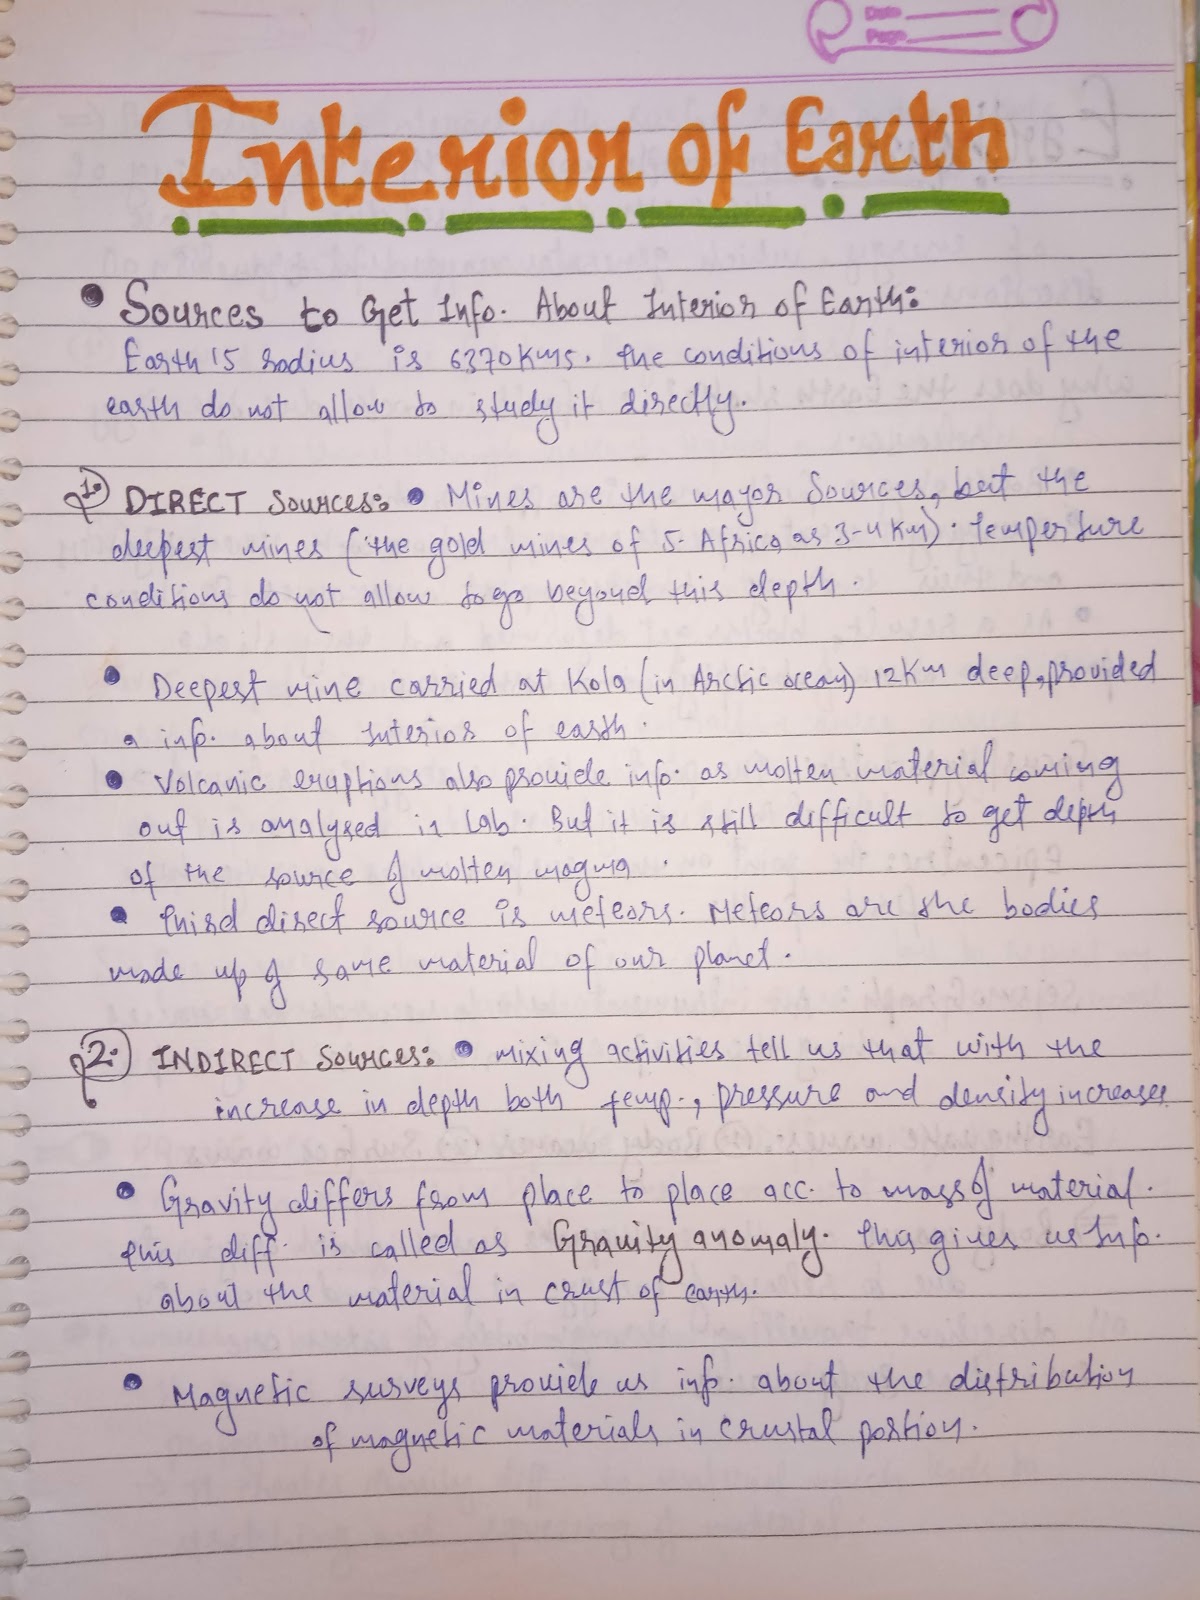 Date
Page
Interior of Earth
• Sources to Get Info. About Interior of Earth:
Earth's radius is 6370 Kms. The conditions of interior of the
earth do not allow to study it directly.
1. DIRECT Sources: • Mines are the major Sources, but the
deepest mines (the gold mines of S. Africa as 3-4 Km). Temperture
conditions do not allow to go beyond this depth.
• Deepest mine carried at Kola (in Arctic ocean) 12 Km deep, provided
a info. about Interior of earth.
• Volcanic eruptions also provide info. as molten material coming
out is analysed in Lab. But it is still difficult to get depth
of the source of molten magma.
• Third direct source is meteors. Meteors are the bodies
made up of same material of our planet.
2. INDIRECT Sources: • mixing activities tell us that with the
increase in depth both temp., pressure and density increases
• Gravity differs from place to place acc. to mass of material.
this diff. is called as Gravity anomaly. This gives us Info.
about the material in crust of earth.
• Magnetic surveys provide us info. about the distribution
of magnetic materials in crustal portion.